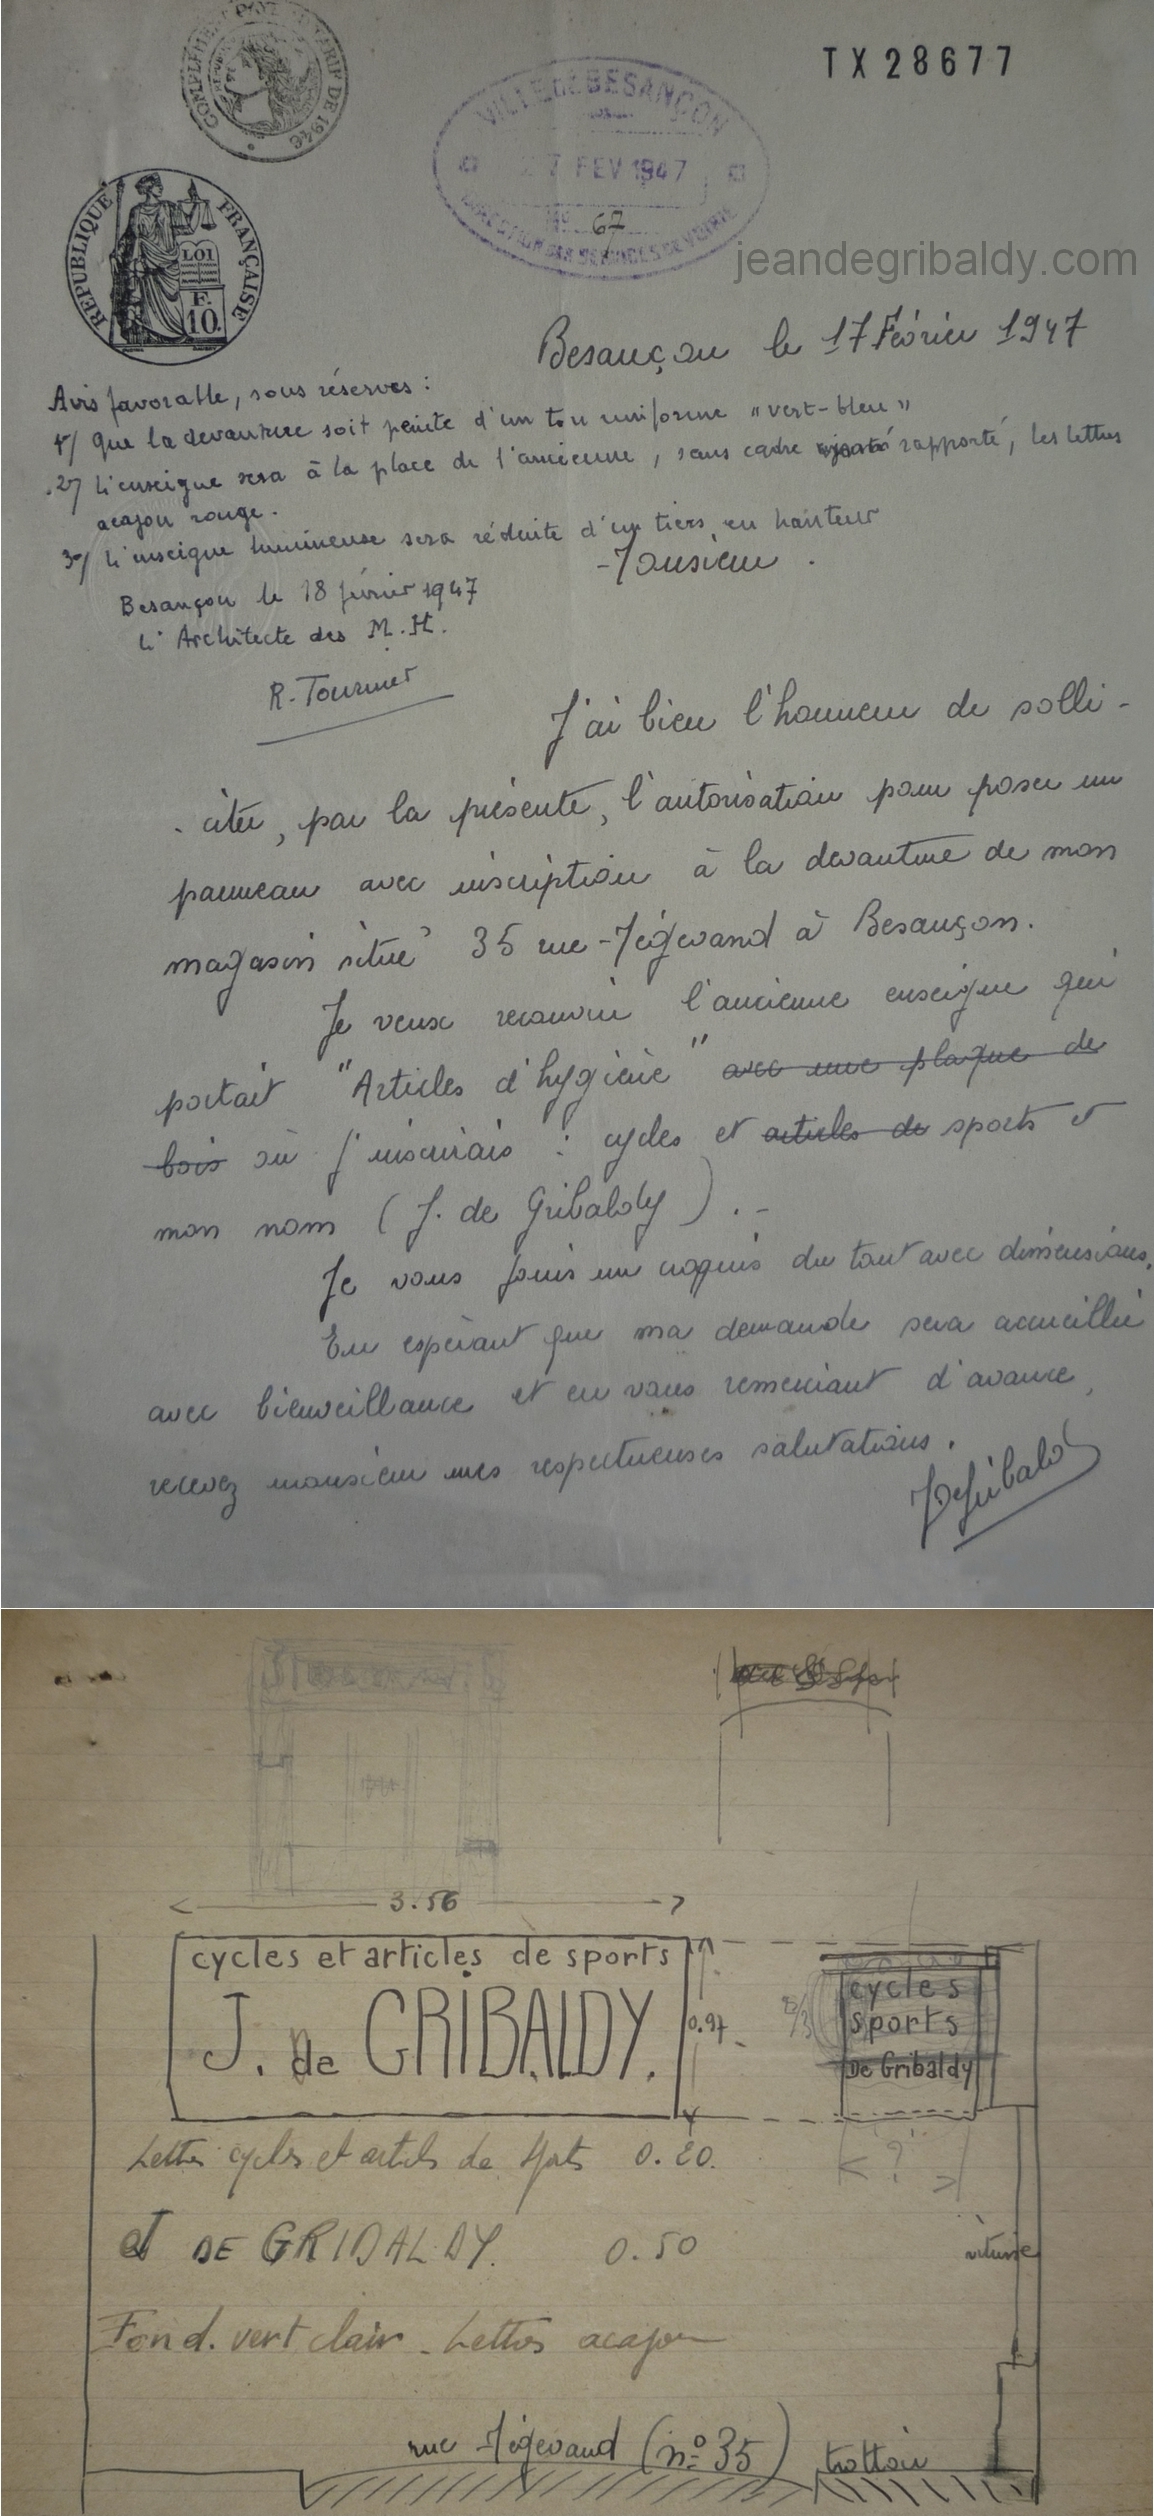 COMPLÉMENT POUR TARIF DE 1946
TX28677
VILLE DE BESANÇON
27 FEV 1947
No 67
DIRECTION DES SERVICES DE VOIRIE
jeandegribaldy.com
REPUBLIQUE FRANÇAISE
LOI
F.
10.
Besançon le 17 Février 1947
Avis favorable, sous réserves :
1°/ que la devanture soit peinte d'un ton uniforme "vert-bleu"
2°/ L'enseigne sera à la place de l'ancienne, sans cadre rapporté, les lettres
acajou rouge.
3°/ L'enseigne lumineuse sera réduite d'un tiers en hauteur
Monsieur.
Besançon le 18 février 1947
L'Architecte des M.H.
R. Tournier
J'ai bien l'honneur de solli-
-citer, par la présente, l'autorisation pour poser un
panneau avec inscription à la devanture de mon
magasin situé 35 rue Mégevand à Besançon.
Je veux recouvrir l'ancienne enseigne qui
portait "Articles d'hygiène" avec une plaque de
bois où j'inscrirais : cycles et articles de sports et
mon nom (J. de Gribaldy).-
Je vous joins un croquis du tout avec dimensions.
En espérant que ma demande sera accueillie
avec bienveillance et en vous remerciant d'avance,
recevez monsieur mes respectueuses salutations.
JdeGribaldy
3.56
cycles et articles de sports
J. de GRIBALDY.
0.97
2/3
cycles
sports
De Gribaldy
Lettres cycles et articles de sports 0.20.
et DE GRIBALDY. 0.50
?
vitrine
Fond. vert clair - Lettres acajou
rue Mégevand (n° 35) trottoir